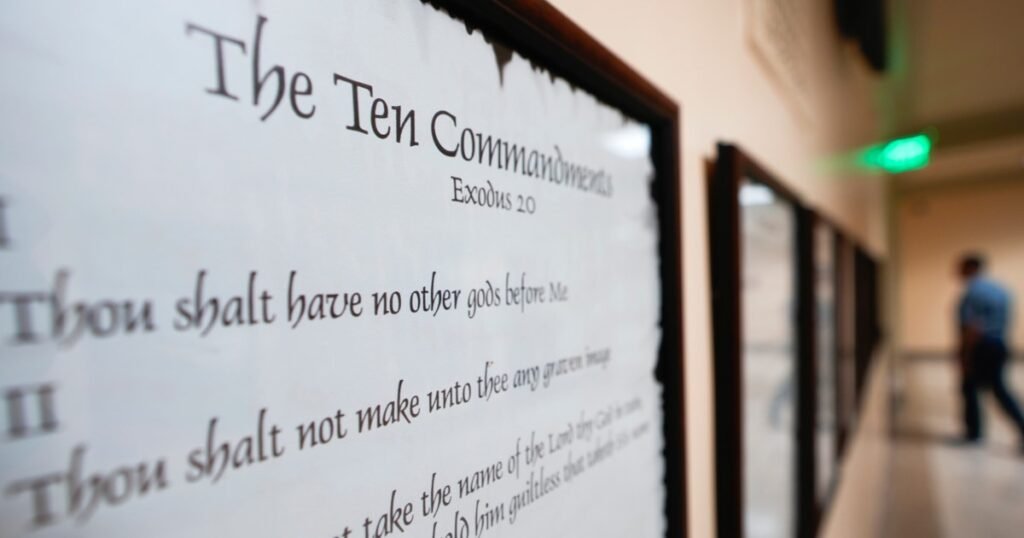 The Ten Commandments
Exodus 20
I
Thou shalt have no other gods before Me
II
Thou shalt not make unto thee any graven image
take the name of the Lord thy God in vain,
hold him guiltless that taketh his name